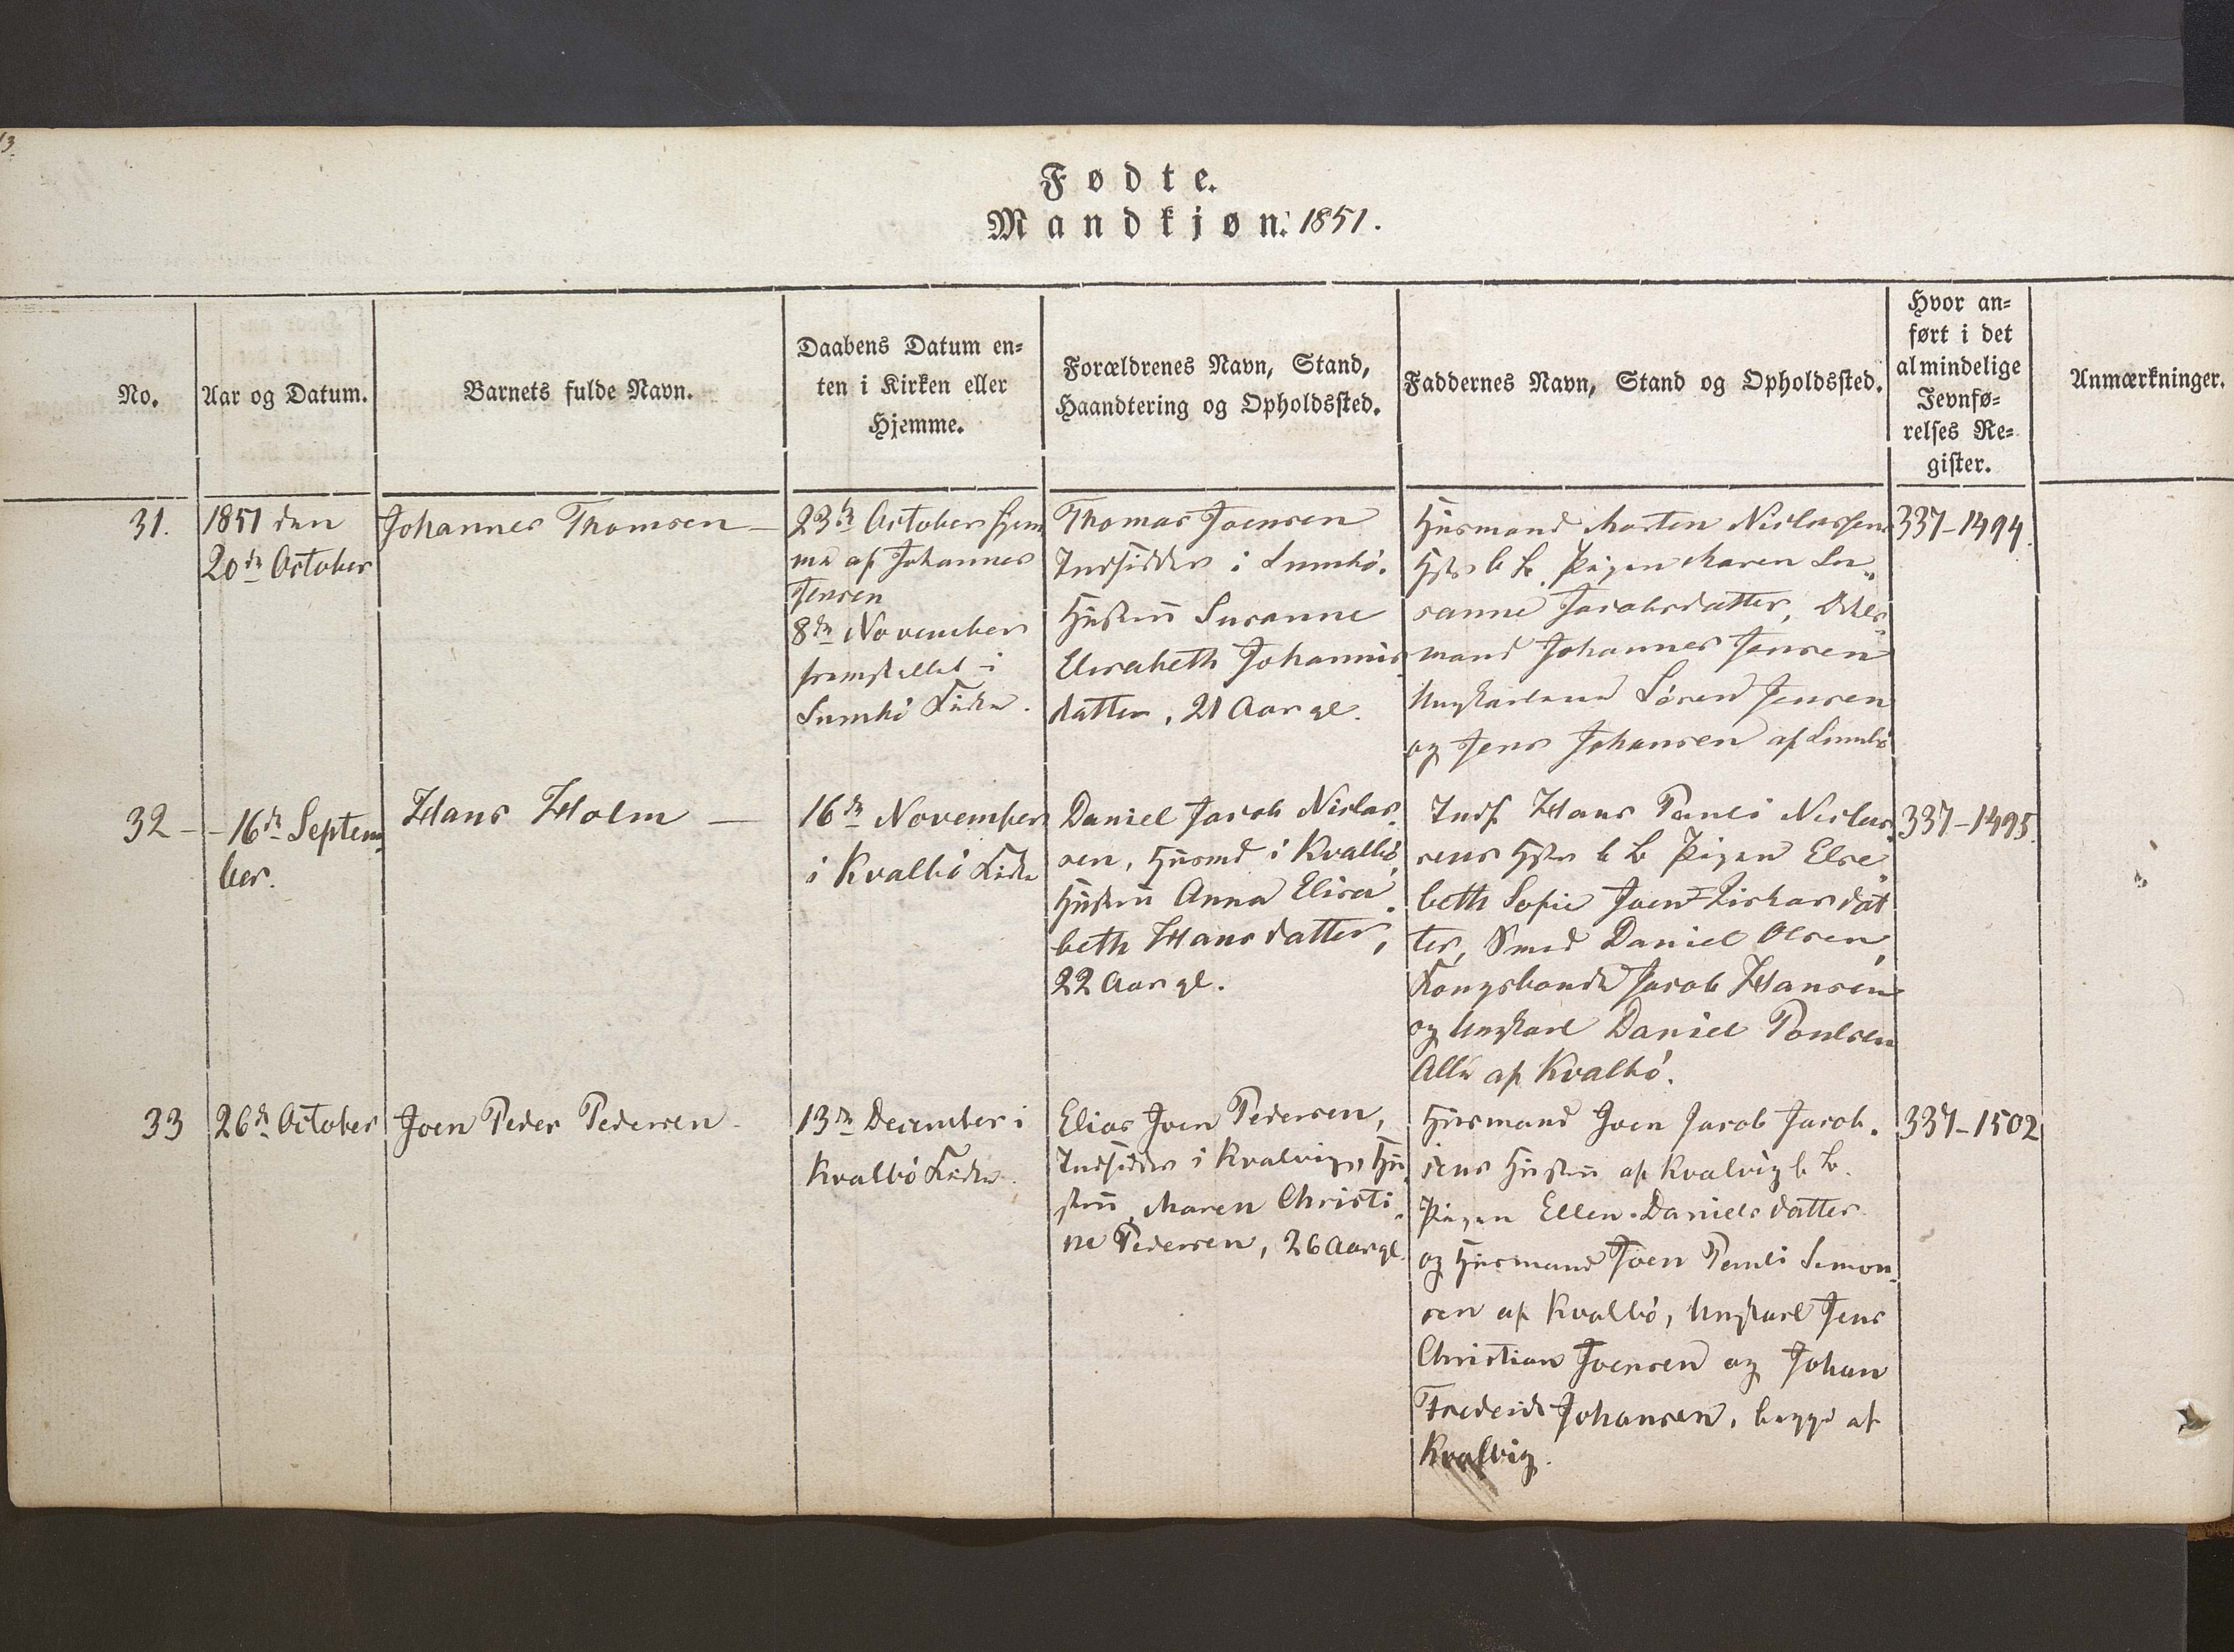 13.
Fødte.
Mandkjøn: 1851.
No.
Aar og Datum.
Barnets fulde Navn.
Daabens Datum en-
ten i Kirken eller
Hjemme.
Forældrenes Navn, Stand,
Haandtering og Opholdssted.
Faddernes Navn, Stand og Opholdssted.
Hvor an-
ført i det
almindelige
Jevnfø-
relses Re-
gister.
Anmærkninger.
31.
1851 den
20de October
Johannes Thomsen —
23de October hjem
me af Johannes
Jensen
8de November
fremstillet i
Sumbö Kirke.
Thomas Joensen
Indsidder i Sumbö.
Hustru Susanne
Elisabeth Johannis
datter, 21 Aar gl.
Husmand Morten Niclassens
Hstr b. b. Pigen Maren Su„
sanne Jacobsdatter,
mand Johannes Jensen
Ungkarlene Sören Jensen
og Jens Johansen af Sumbö
337-1494.
32 -
- 16de Septem„
ber.
Hans Holm —
16de November
i Kvalbö Kirke
Daniel Jacob Niclas„
sen, Husmd i Kvalbö,
Hustru Anna Elisa„
beth Hansdatter,
22 Aar gl.
Inds. Hans Pauli Niclas„
sens Hstr b b Pigen Else„
beth Sofie Joen Zirkarsdat
ter, Smed Daniel Olsen,
Kongsbonde Jacob Hansen
og Ungkarl Daniel Poulsen
Alle af Kvalbö.
337-1495.
33
26de October
Joen Peder Pedersen -
13de December i
Kvalbö Kirke.
Elias Joen Pedersen,
Indsidder i Kvalvig, Hu„
stru, Maren Christi„
ne Pedersen, 26 Aar gl.
Husmand Joen Jacob Jacob„
sens Hustru af Kvalvig b. b.
Pigen Ellen Danielsdatter
og Husmand Joen Pauli Simon„
sen af Kvalbö, Ungkarl Jens
Christian Joensen og Johan
Frederik Johansen, begge af
Kvalvig.
337-1502